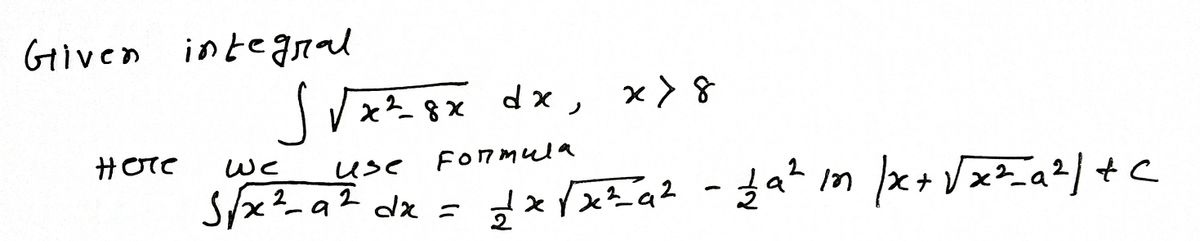 Given integral
∫ √x²-8x dx, x > 8
Here we use Formula
∫√x²-a² dx = 1/2 x √x²-a² - 1/2 a² ln |x+√x²-a²| + C